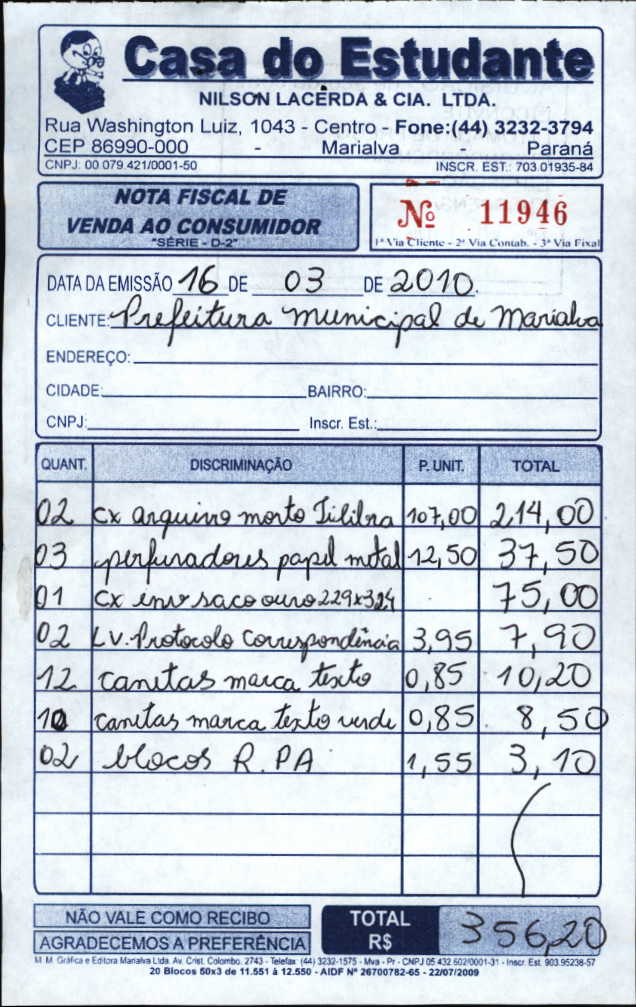 Casa do Estudante
NILSON LACERDA & CIA. LTDA.
Rua Washington Luiz, 1043 - Centro - Fone:(44) 3232-3794
CEP 86990-000 - Marialva Paraná
CNPJ: 00 079.421/0001-50 INSCR. EST.: 703.01935-84
NOTA FISCAL DE
VENDA AO CONSUMIDOR
"SÉRIE - D-2"
Nº 11946
1ª Via Cliente - 2ª Via Contab. - 3ª Via Fixa
DATA DA EMISSÃO 16 DE 03 DE 2010
CLIENTE: Prefeitura municipal de Marialva
ENDEREÇO:
CIDADE: BAIRRO:
CNPJ: Inscr. Est.:
QUANT. DISCRIMINAÇÃO P. UNIT. TOTAL
02 cx arquivo morto Tilibra 107,00 214,00
03 perfuradores papel metal 12,50 37,50
01 cx env saco ouro 229x324 75,00
02 LV. Protocolo Correspondência 3,95 7,90
12 canetas marca texto 0,85 10,20
10 canetas marca texto verde 0,85 8,50
02 blocos R.PA 1,55 3,10
NÃO VALE COMO RECIBO
AGRADECEMOS A PREFERÊNCIA
TOTAL R$ 356,20
M. M. Gráfica e Editora Marialva Ltda. Av. Crist. Colombo, 2743 - Telefax (44) 3232-1575 - Mva - Pr - CNPJ 05 432 602/0001-31 - Inscr. Est. 903.95238-57
20 Blocos 50x3 de 11.551 à 12.550 - AIDF Nº 26700782-65 - 22/07/2009